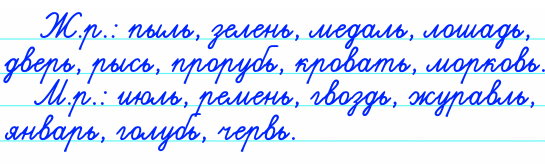 Ж.р.: пыль, зелень, медаль, лошадь,
дверь, рысь, прорубь, кровать, морковь.
М.р.: июль, ремень, гвоздь, журавль,
январь, голубь, червь.